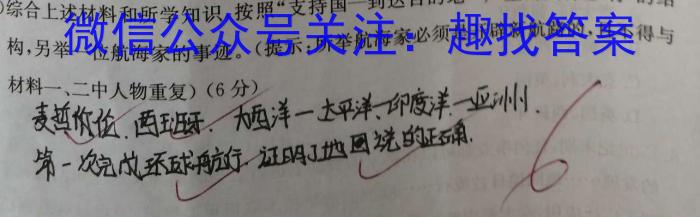 综合上述材料和所学知识，按照“支持国一到达目的地
构，另举一位航海家的事迹。（提示：所举航海家必须是
得与
微信公众号关注：趣找答案
材料一、二中人物重复）（6分）
麦哲伦 西班牙、大西洋一太平洋、印度洋一亚洲
第一次完成环球航行，证明了地圆说的正确.
6